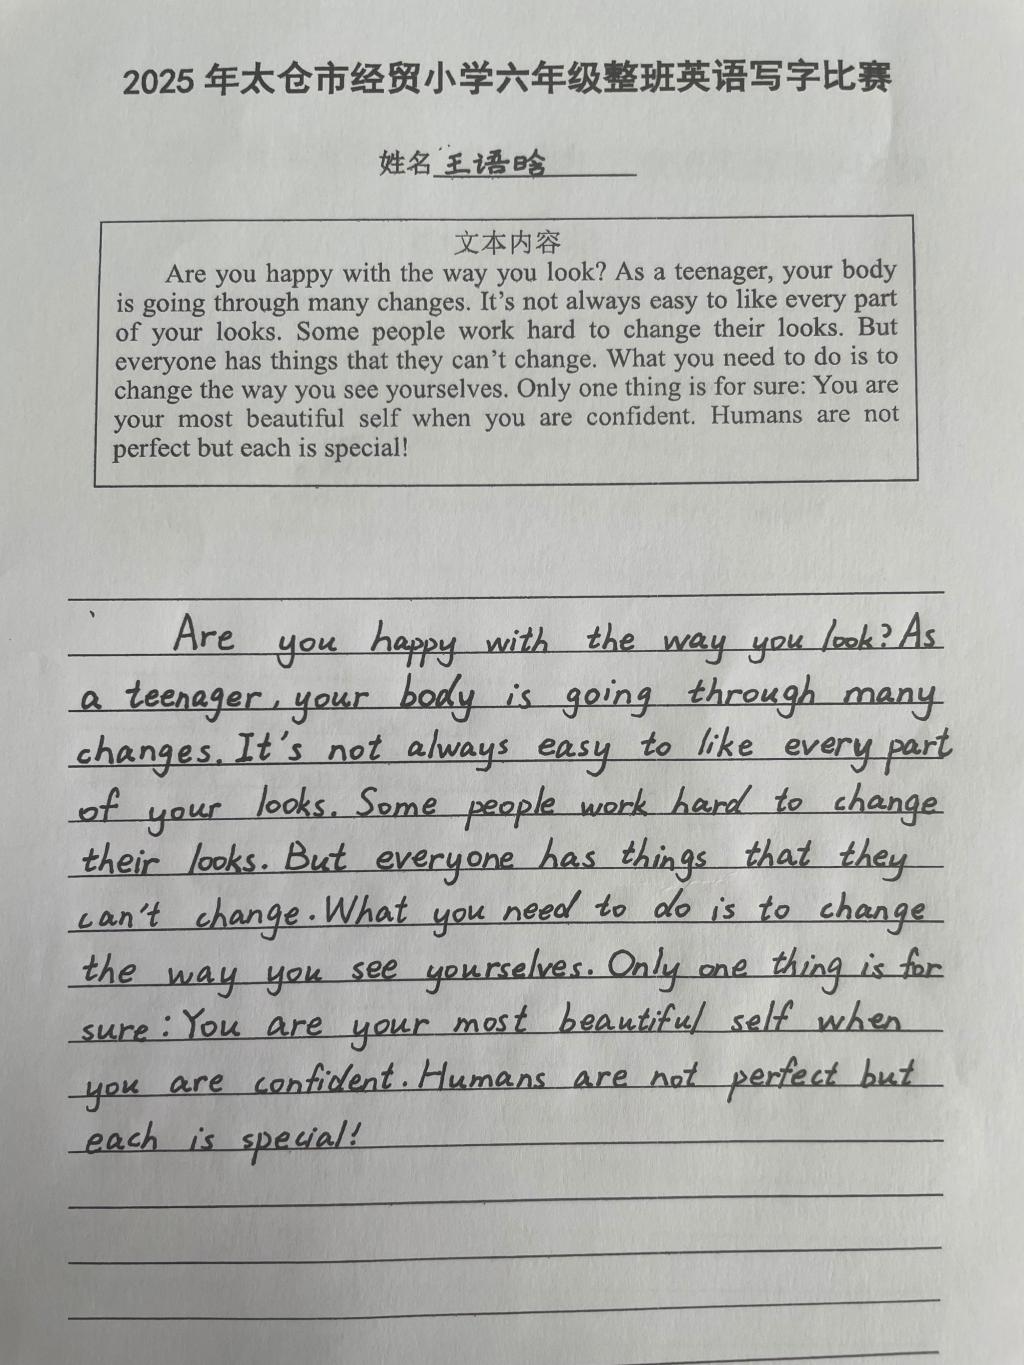 2025 年太仓市经贸小学六年级整班英语写字比赛
姓名 王语晗
文本内容
Are you happy with the way you look? As a teenager, your body
is going through many changes. It's not always easy to like every part
of your looks. Some people work hard to change their looks. But
everyone has things that they can't change. What you need to do is to
change the way you see yourselves. Only one thing is for sure: You are
your most beautiful self when you are confident. Humans are not
perfect but each is special!
Are you happy with the way you look? As
a teenager, your body is going through many
changes. It's not always easy to like every part
of your looks. Some people work hard to change
their looks. But everyone has things that they
can't change. What you need to do is to change
the way you see yourselves. Only one thing is for
sure: You are your most beautiful self when
you are confident. Humans are not perfect but
each is special!